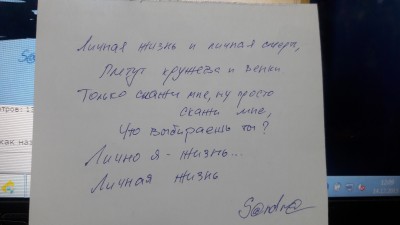 Личная жизнь и личная смерть,
Плетут кружева и венки
Только скажи мне, ну просто
скажи мне,
Что выбираешь ты?
Лично я - жизнь...
Личная жизнь
S@ndr@
как наз